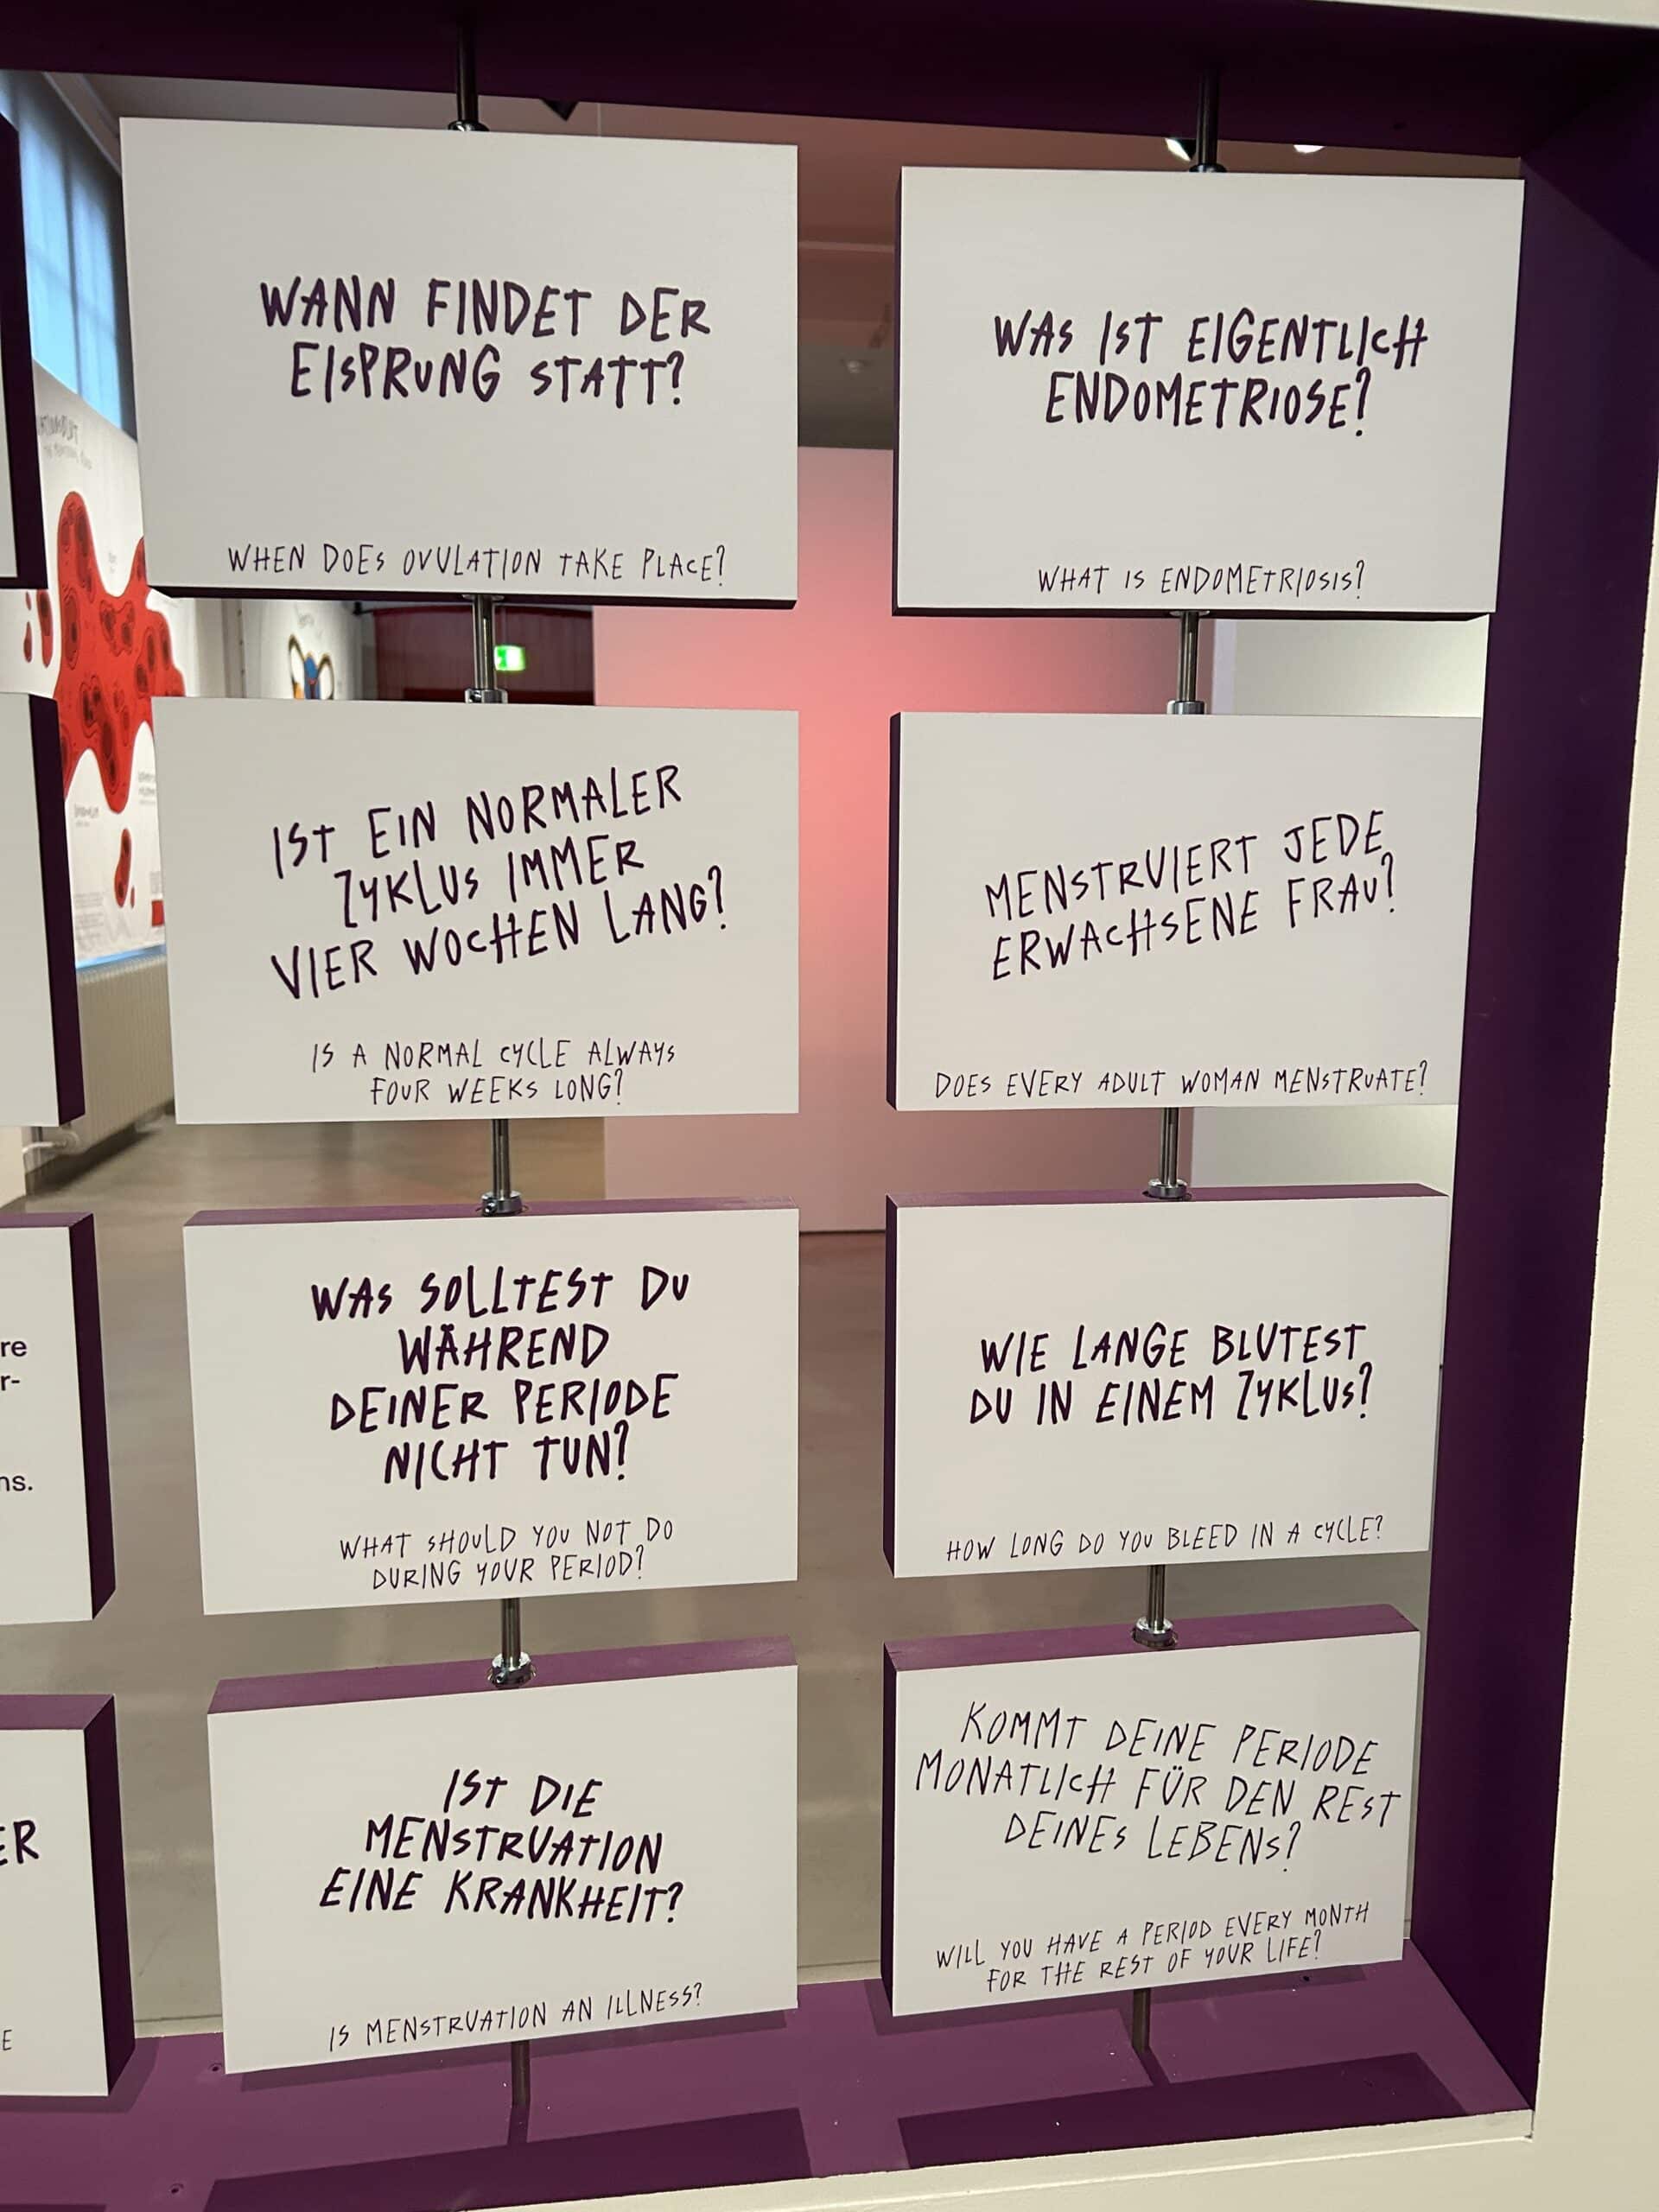 WANN FINDET DER
EISPRUNG STATT?
WHEN DOES OVULATION TAKE PLACE?
WAS IST EIGENTLICH
ENDOMETRIOSE?
WHAT IS ENDOMETRIOSIS?
IST EIN NORMALER
ZYKLUS IMMER
VIER WOCHEN LANG?
IS A NORMAL CYCLE ALWAYS
FOUR WEEKS LONG?
MENSTRUIERT JEDE
ERWACHSENE FRAU?
DOES EVERY ADULT WOMAN MENSTRUATE?
re
r-
ns.
WAS SOLLTEST DU
WÄHREND
DEINER PERIODE
NICHT TUN?
WHAT SHOULD YOU NOT DO
DURING YOUR PERIOD?
WIE LANGE BLUTEST
DU IN EINEM ZYKLUS?
HOW LONG DO YOU BLEED IN A CYCLE?
ER
E
IST DIE
MENSTRUATION
EINE KRANKHEIT?
IS MENSTRUATION AN ILLNESS?
KOMMT DEINE PERIODE
MONATLICH FÜR DEN REST
DEINES LEBENS?
WILL YOU HAVE A PERIOD EVERY MONTH
FOR THE REST OF YOUR LIFE?